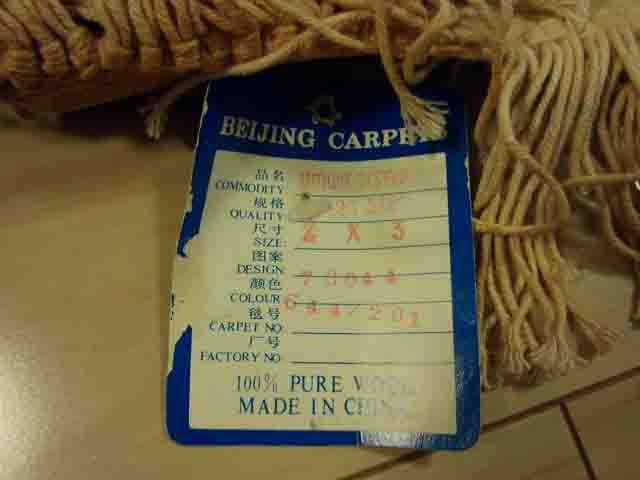 BEIJING CARPETS
品名
COMMODITY
规格
QUALITY
尺寸 2 X 3
SIZE:
图案
DESIGN 73044
颜色
COLOUR 644/201
毯号
CARPET NO
厂号
FACTORY NO
100% PURE WOOL
MADE IN CHINA